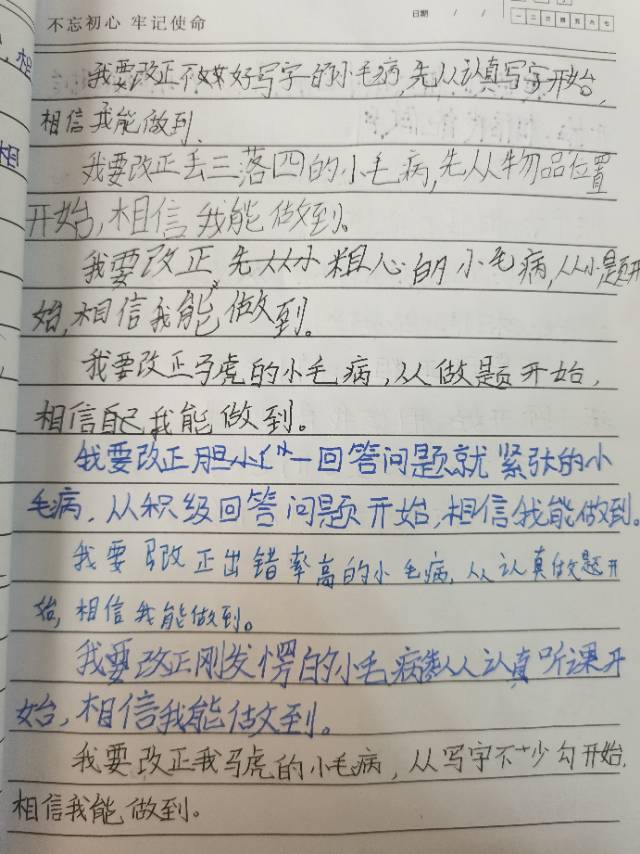 不忘初心 牢记使命
日期 / /
一 二 三 四 五 六 七
我要改正不好好写字的小毛病,先从认真写字开始,
相信我能做到.
我要改正丢三落四的小毛病,先从物品位置
开始,相信我能做到。
我要改正 粗心的小毛病,从小题开
始,相信我能做到。
我要改正马虎的小毛病,从做题开始,
相信自己我能做到。
我要改正胆小 一回答问题就紧张的小
毛病,从积级回答问题开始,相信我能做到。
我要改正出错率高的小毛病,从认真做题开
始,相信我能做到。
我要改正刚发愣的小毛病 从认真听课开
始,相信我能做到。
我要改正我马虎的小毛病,从写字不少勾开始,
相信我能做到。
相
相